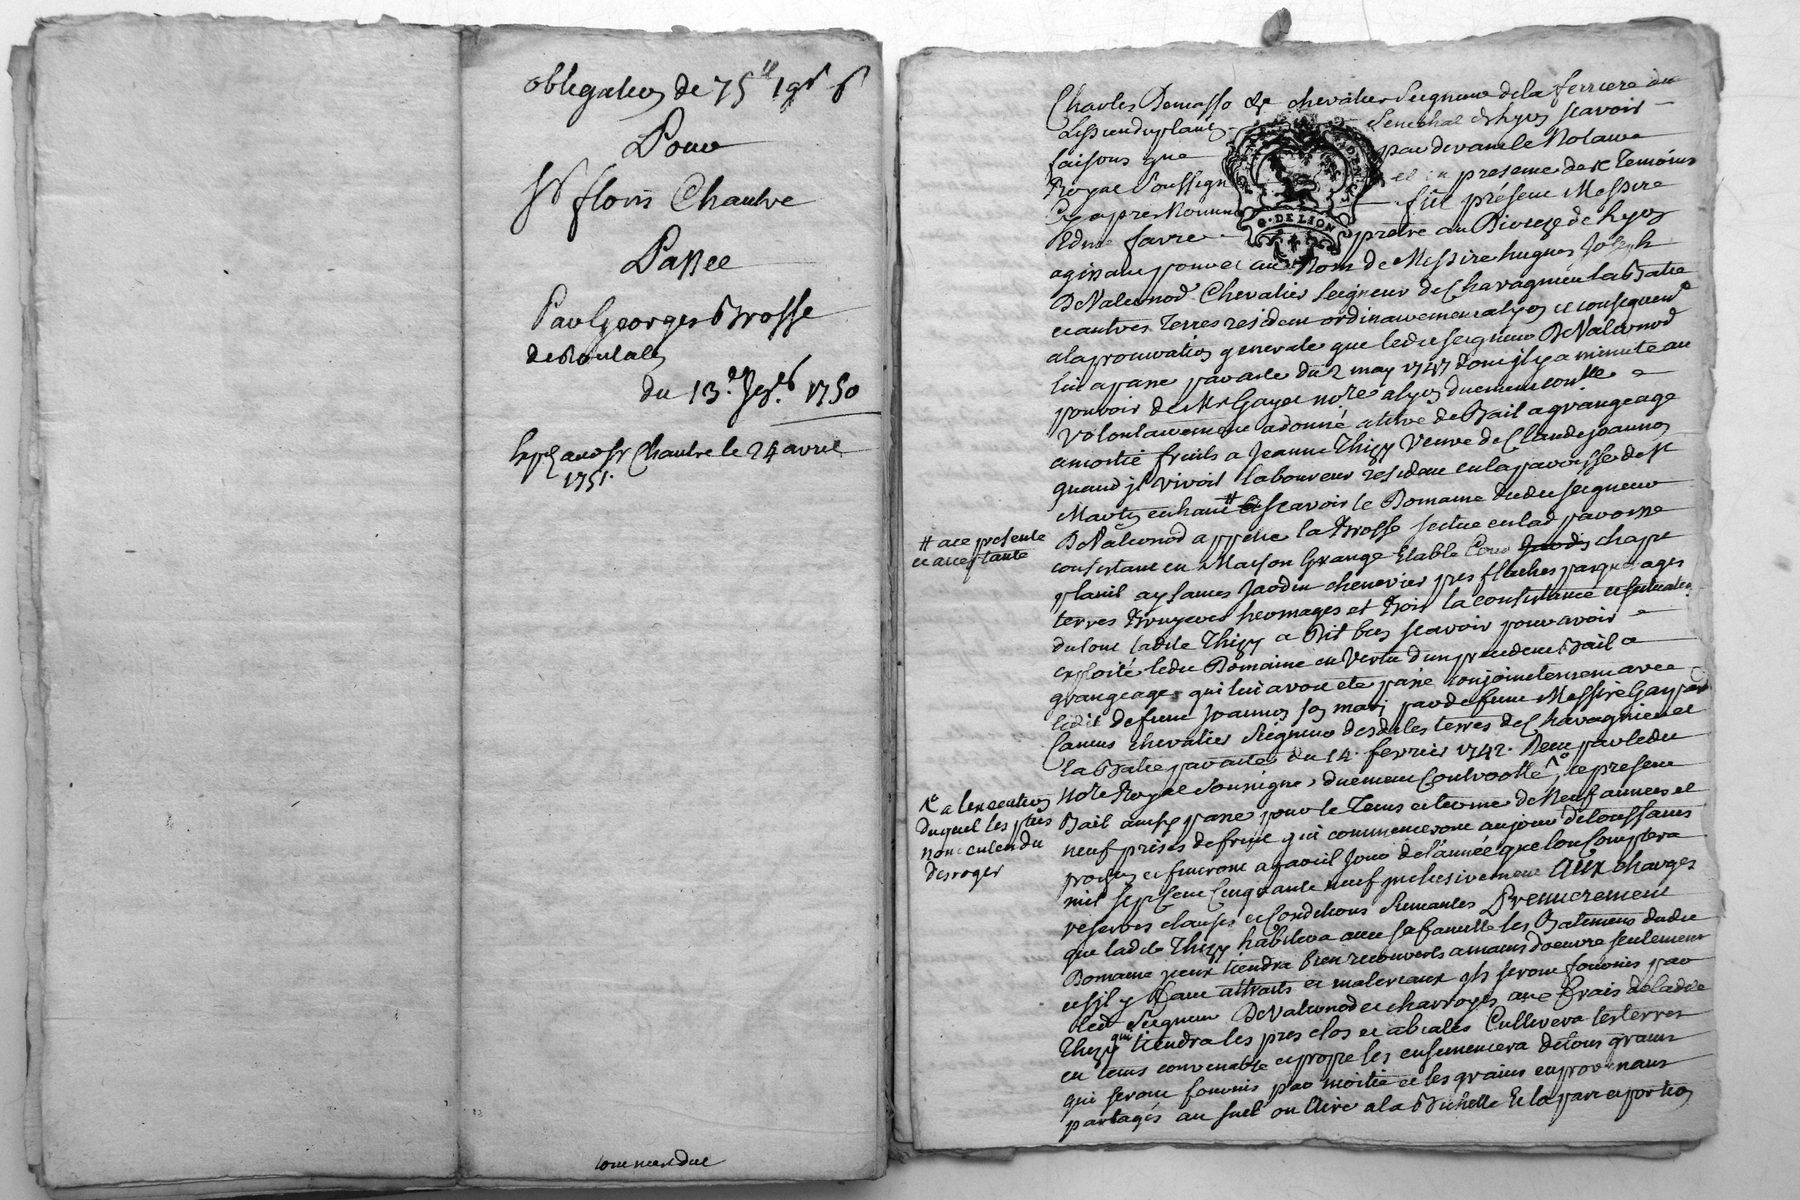 obligation de 75ll 19s 6
Pour
Sr floris Chantre
Passée
Par Georges Brosse
de Roulat
du 13.e 1750
Exp. au Sr Chantre le 24 avril
1751.
comme due
Charles Demasso &c chevalier Seigneur de la ferriere du
Plantin Senechal de lyon scavoir
faisons que pardevant le Notaire
Royal Soussigné et en presence des Temoins
Cy apres Nommés fut présent Messire
Edme favre pretre au Diocese de lyon
G. DE LION
agissant pour et au Nom de Messire hugues Joseph
De Valernod Chevalier Seigneur de Chavagnieu la Batie
et autres Terres resident ordinairement a lyon et consequent
a la procuration generale que ledit seigneur De Valernod
lui a passé par acte du 2 may 1747 dont il y a minute au
pouvoir de Me Gayet nore a lyon duement conllé
volontairement a donné a titre de Bail a grangeage
a moitié fruits a Jeanne Thizy veuve de Claude joannon
quand il vivoit laboureur residente en la paroisse de St
Martin en haut # scavoir le Domaine dudit seigneur
# a ce presente
et acceptante
De Valernod appellé la Brosse scitue en lad paroisse
consistant en Maison Grange Etable Cour chape
plassil aysances Jardin chenevier pres fluches pasquerages
terres Bruyeres hermages et Bois la consistance et scituation
du tout ladite Thizy a Dit bien scavoir pour avoir
exploité ledit Domaine en vertu d'un precedent Bail a
grangeage qui lui avoit eté passé conjointement avec
ledit defunt joannon son mari par defunt Messire Gaspard
Camus chevalier Seigneur desdites terres de Chavagnieu et
la Batie par acte du 14 fevrier 1742. Receu par ledit
nore Royal soussigné, duement Controollé, ce present
a lexecution
duquel les pties
nont entendu
desroger
Bail ainsy passé pour le Tems et terme de Neuf années et
neuf prises de fruit qui commenceront au jour de toussaints
prochain et finiront a pareil jour de l'année que lon Comptera
mil sept Cent Cinquante neuf inclusivement AUX charges
reserves clauses et Conditions suivantes Premierement
que ladite Thizy habitera avec sa famille les Batimens dudit
Domaine yceux tiendra bien recouverts a main d'oeuvre seulement
et s'il y faut attraits et materiaux ils seront fournis par
led Seigneur De Valernod et charroyés aux frais de ladite
Thizy qui tiendra les pres clos et abiales Cultivera les terres
en tems convenable et propre les ensemencera de tous grains
qui seront fournis par moitié et les grains en provenants
partagés au suel ou Aire a la Bichette Et la part et portion